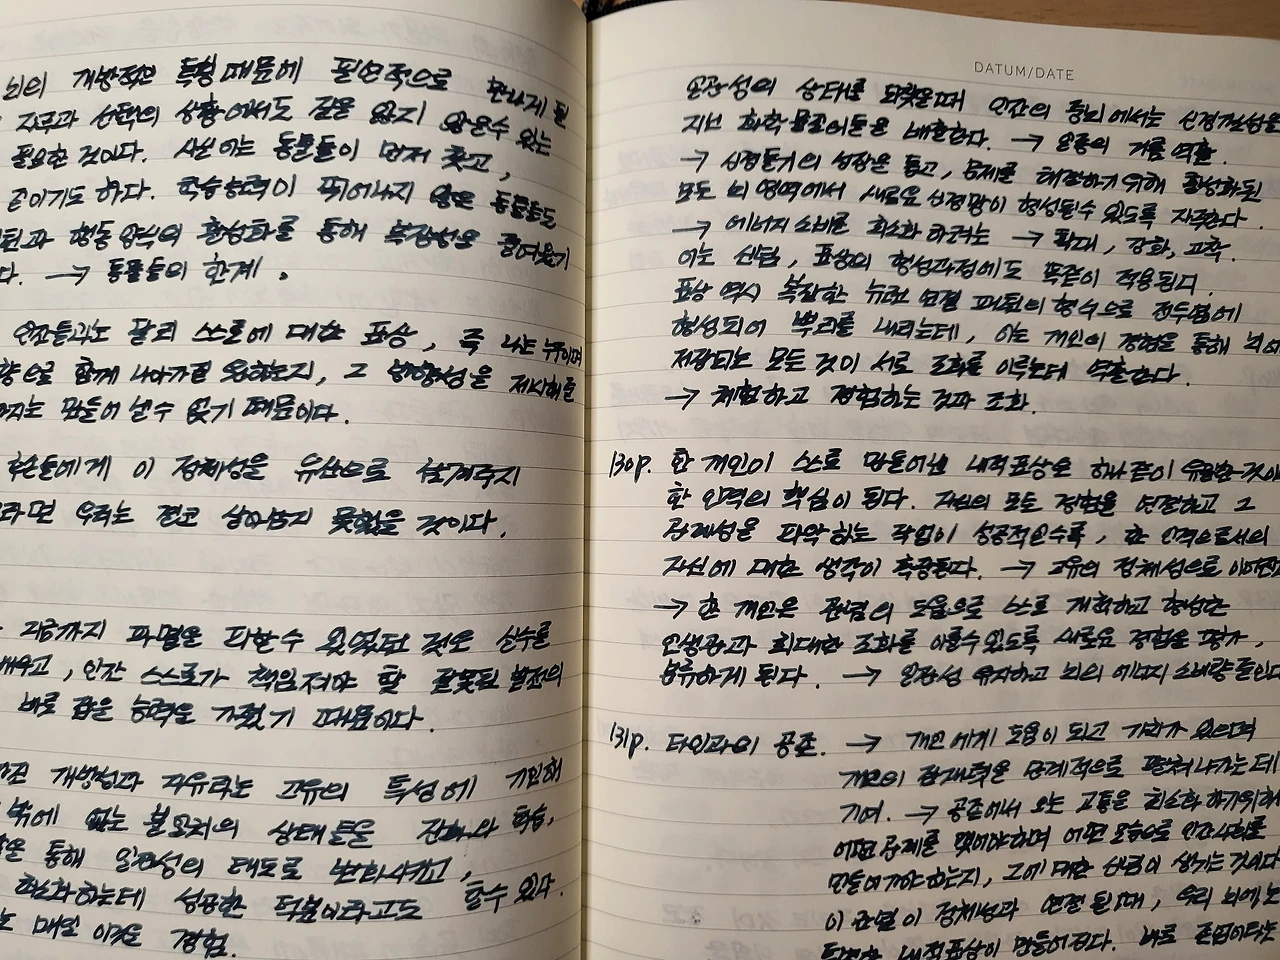 뇌의 개방적인 특징 때문에 필연적으로 만나게 된
자극과 선택의 상황에서도 길을 잃지 않을 수 있는
필요한 것이다. 사실 이는 동물들이 먼저 찾고,
이기도 하다. 학습능력이 뛰어나지 않은 동물들도
행동양식의 활성화를 통해 복잡성을 줄여왔기
다. → 동물들의 한계.
인간들과는 달리 스스로에 대한 표상, 즉 나는 누구이며
함께 나아가길 원하는지, 그 방향성을 제시해줄
까지는 만들어 낼 수 없기 때문이다.
후손들에게 이 정체성을 유산으로 남겨주지
라면 우리는 결코 살아남지 못했을 것이다.
지금까지 파멸을 피할 수 있었던 것은 실수를
배우고, 인간 스스로가 책임져야 할 잘못된 발전의
바로 잡을 능력을 가졌기 때문이다.
개방성과 자유라는 고유의 특성에 기인해
밖에 없는 불요리의 상태들을 진화와 학습,
을 통해 일관성의 태도로 변화시키고,
최소화하는데 성공한 덕분이라고도 할 수 있다.
매일 이것을 경험.
DATUM/DATE
일관성의 상태를 되찾을 때 인간의 중뇌에서는 신경가소성을
지닌 화학물질들을 배출한다. → 일종의 거름 역할.
→ 신경돌기의 성장을 돕고, 문제를 해결하기 위해 활성화된
모든 뇌 영역에서 새로운 신경망이 형성될 수 있도록 자극한다.
→ 에너지 소비를 최소화 하려는 → 확대, 강화, 고착.
이는 신념, 표상의 형성과정에도 똑같이 적용된다.
표상 역시 복잡한 뉴런 연결 패턴의 형식으로 전두엽에
형성되어 뿌리를 내리는데, 이는 개인이 경험을 통해 뇌에
저장되는 모든 것이 서로 조화를 이루는데 역할한다.
→ 체험하고 경험하는 것과 조화.
130p. 한 개인이 스스로 만들어낸 내적표상은 하나같이 유일한 것이며
한 인격의 핵심이 된다. 자신의 모든 경험을 연결하고 그
관계성을 파악하는 작업이 성공적일수록, 한 인격으로서의
자신에 대한 생각이 확장된다. → 고유의 정체성으로
→ 한 개인은 관념의 도움으로 스스로 계획하고 형성한
인생관과 최대한 조화를 이룰 수 있도록 새로운 경험을 평가,
분류하게 된다. → 일관성 유지하고 뇌의 에너지 소비량 줄인다
131p. 타인과의 공존. → 개인에게 도움이 되고 가치가 있으며
개인의 잠재력을 단계적으로 펼쳐나가는데
기여. → 공존에서 오는 고통을 최소화하기위해
어떤 관계를 맺어야하며 어떤 모습으로 인간사회를
만들어가야 하는지, 그에 대한 신념이 생기는 것이다
이 관념이 정체성과 연결될 때, 우리 뇌에는
내적표상이 만들어진다. 바로 존엄이라는